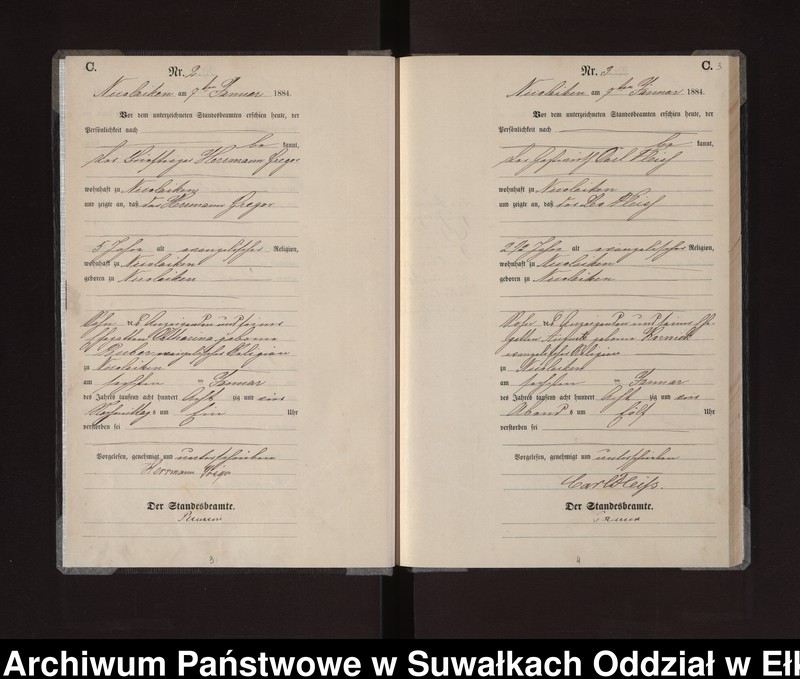 C.
Nr. 2
Nicolaiken am 9ten Januar 1884.
Vor dem unterzeichneten Standesbeamten erschien heute, der
Persönlichkeit nach
be kannt,
der Herrmann Gregor
wohnhaft zu Nicolaiken
und zeigte an, daß der Hermann Gregor
5 Jahre alt evangelischer Religion,
wohnhaft zu Nicolaiken
geboren zu Nicolaiken
Sohn des Anzeigenden und seiner
Ehegattin Catharina geborene
evangelischer Religion
zu Nicolaiken
am sechsten Januar
des Jahres tausend acht hundert acht zig und
Nachmittags um Uhr
verstorben sei
Vorgelesen, genehmigt und unterschrieben
Herrmann
Der Standesbeamte.
3
Nr. 3
C. 3
Nicolaiken am 9ten Januar 1884.
Vor dem unterzeichneten Standesbeamten erschien heute, der
Persönlichkeit nach
be kannt,
der Carl Fleiß
wohnhaft zu Nicolaiken
und zeigte an, daß der Leo Fleiß
2 1/2 Jahre alt evangelischer Religion,
wohnhaft zu Nicolaiken
geboren zu Nicolaiken
Sohn des Anzeigenden und seiner Ehe-
gattin Auguste geborene
evangelischer Religion
zu Nicolaiken
am Januar
des Jahres tausend acht hundert acht zig und
Abends um Uhr
verstorben sei
Vorgelesen, genehmigt und unterschrieben
Carl Fleiß.
Der Standesbeamte.
4
Archiwum Państwowe w Suwałkach Oddział w Ełk